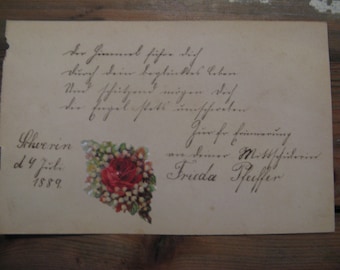 Der Himmel führe dich
Durch dein beglücktes Leben
Und schützend mögen dich
die Engel stets umschweben
Zur Erinnerung
an deine Mitschülerin
Frieda Pfeiffer
Schwerin
d 4 Juli
1889